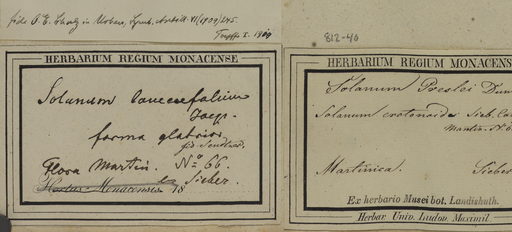 fide O. E. Schulz in Urban, Symb. Antill. VI (1909) 245.
I. 1910
HERBARIUM REGIUM MONACENSE
Solanum lanceaefolium
Jacq.
forma glabrior
fid Sendtner.
Flora Martin. No 66.
Hortus Monacensis 18 Sieber.
812-40
HERBARIUM REGIUM MONACENS
Solanum Dun
Solanum crotonoides Sieb.
Martin. No
Martinica. Sieber
Ex herbario Musei bot. Landishuth.
Herbar. Univ. Ludov. Maximil.